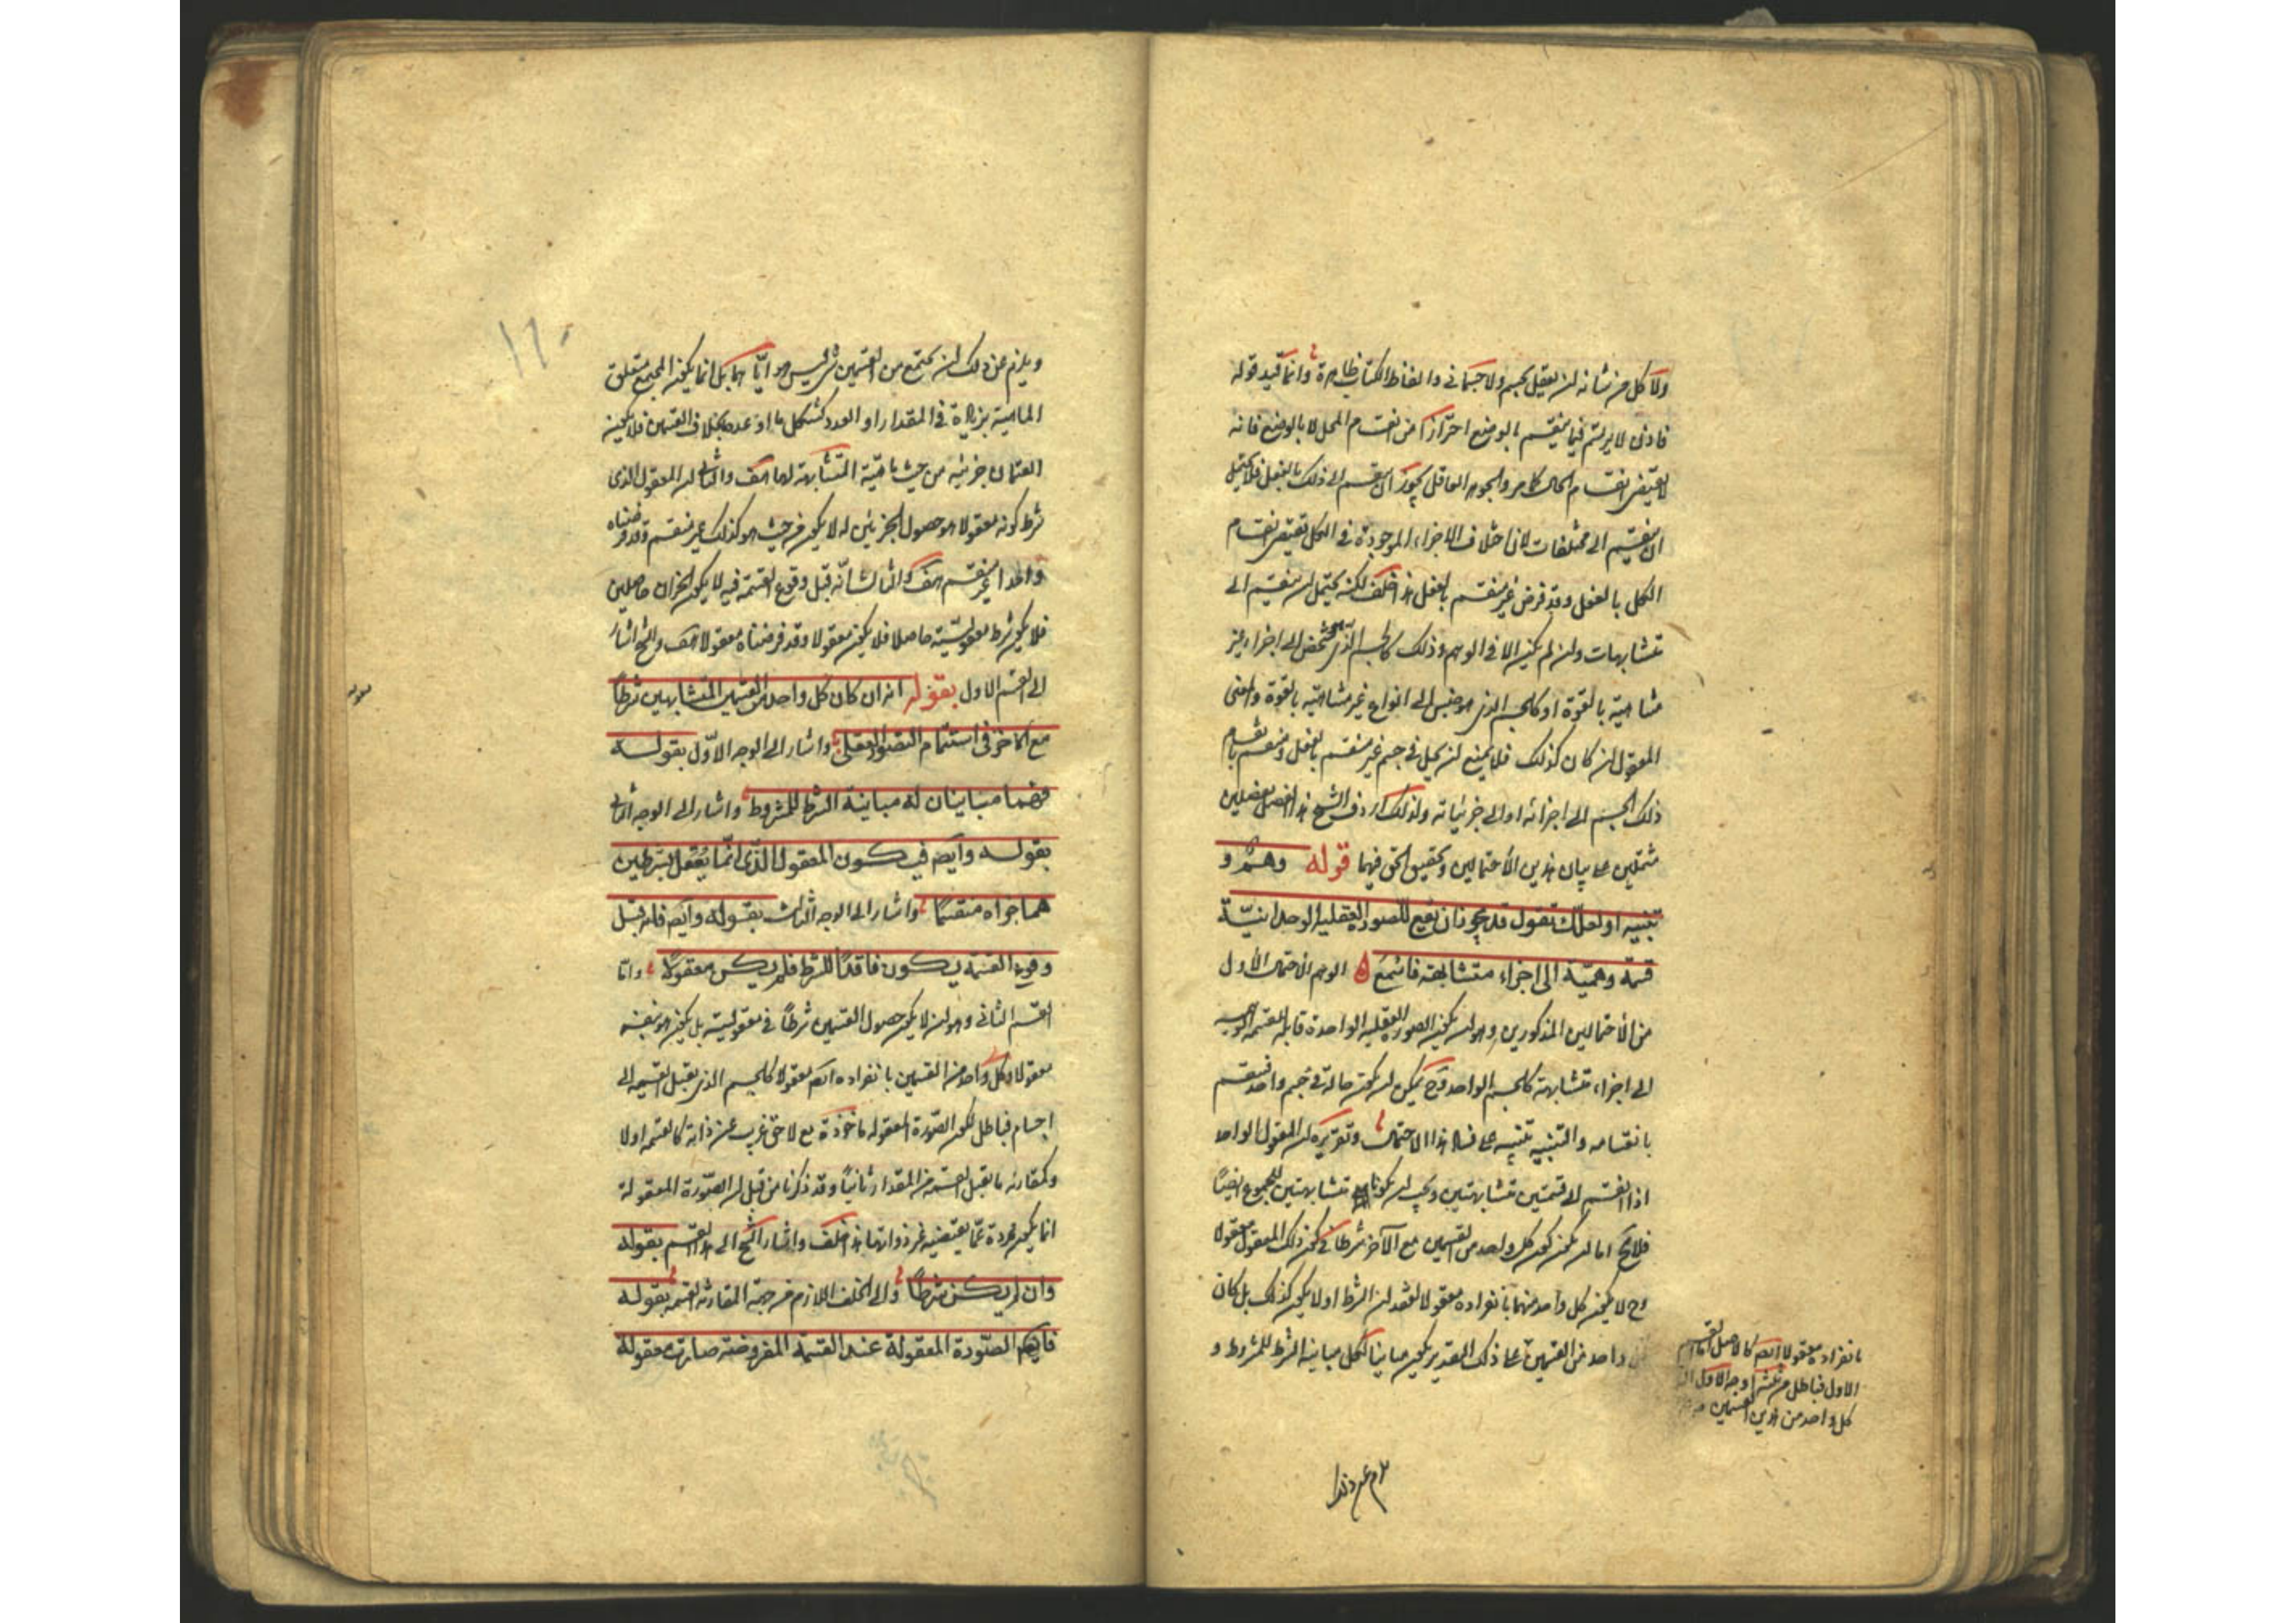 ولا كل من شانه ان يعقل بجسم ولا جسمانى والفاظ الكتاب ظاهرة وانما قيد قوله
فاذن لا يرتسم فيما ينقسم بالوضع احترازا من انقسام المحل لا بالوضع فانه
لا يقتضى انقسام الحال كما مر والجوهر العاقل يجوز ان ينقسم الى ذلك بالفعل فلا يحتمل
ان ينقسم الى مختلفات لان اختلاف الاجزاء الموجودة فى الكل تقتضى انقسام
الكل بالفعل وقد فرض غير منقسم بالفعل هذا خلف لكنه يحتمل ان ينقسم الى
متشابهات وان لم يكن الا فى الوهم وذلك كالجسم الذى الى اجزاء غير
متناهية بالقوة او كالجسم الذى هو جنس الى انواع غير متناهية بالقوة والمعنى
المعقول ان كان كذلك فلا يمتنع ان يحل فى جسم غير منقسم بالفعل وينقسم بانقسام
ذلك الجسم الى اجزائه او الى جزئياته ولذلك اردف الشيخ هذا الفصل بفصلين
مشتملين على بيان هذين الاحتمالين وتحقيق الحق فيهما قوله وهم و
تنبيه او لعلك تقول قد يجوز ان تقع للصورة العقلية الوحدانية
قسمة وهمية الى اجزاء متشابهة فاسمع الوهم الاحتمال الاول
من الاحتمالين المذكورين وهو ان يكون الصورة العقلية الواحدة قابلة للقسمة الوهمية
الى اجزاء متشابهة كالجسم الواحد وح يمكن ان يكون حالة فى جسم واحد فينقسم
بانقسامه والتنبيه تنبيه على فساد هذا الاحتمال وتقريره ان المعقول الواحد
اذا انقسم الى قسمين متشابهين ويجب ان يكونا متشابهين للمجموع ايضا
فلا يخ اما ان يكون كون كل واحد من القسمين مع الآخر شرطا فى كون ذلك المعقول معقولا
وح لا يكون كل واحد منهما بانفراده معقولا لفقدان الشرط او لا يكون كذلك بل كان
واحد من القسمين على ذلك التقدير يكون مباينا للكل مباينة الشرط للمشروط و
بانفراده معقولا ايضا كالاصل اما القسم
الاول فباطل من ثلثة اوجه الاول ان
كل واحد من هذين القسمين
ويلزم عن ذلك ان يجتمع من القسمين شئ ليس هو اياهما بل انما يكون المجتمع متعلق
الماهية بزيادة فى المقدار او العدد كشكل ما او عدد بخلاف القسمين فلا يكون
القسمان جزئيه من حيث ماهيته المتشابهة لهما هف والثانى ان المعقول الذى
شرط كونه معقولا هو حصول الجزئين له لا يكون من حيث هو كذلك غير منقسم وقد فرضناه
واحدا غير منقسم هف والثالث انه قبل وقوع القسمة فيه لا يكون الجزان حاصلين
فلا يكون شرط معقوليته حاصلا فلا يكون معقولا وقد فرضناه معقولا هف والشيخ اشار
الى القسم الاول بقوله انه ان كان كل واحد من القسمين المتشابهين شرطا
مع الآخر فى استتمام التصور العقلى واشار الى الوجه الاول بقوله
فهما مباينان له مباينة الشرط للمشروط واشار الى الوجه الثانى
بقوله وايضا فيكون المعقول الذى انما يعقل بشرطين
هما جزاه منقسما واشار الى الوجه الثالث بقوله وايضا فانه قبل
وقوع القسمة يكون فاقدا للشرط فلم يكن معقولا واما
القسم الثانى وهو ان لا يكون حصول القسمين شرطا فى معقوليته بل يكون هو بنفسه
معقولا وكل واحد من القسمين بانفراده ايضا معقولا كالجسم الذى يقبل القسمة الى
اجسام فباطل لكون الصورة المعقولة ماخوذة مع لاحق غريب عن ذاته كالقسمة اولا
وكمقارنة ما يقبل القسمة من المقدار ثانيا وقد ذكرنا من قبل ان الصورة المعقولة
انما يكون مجردة عما يقتضيه غير ذواتها هذا خلف واشار الشيخ الى هذا القسم بقوله
وان لم يكن شرطا والى الخلف اللازم من جهة المقارنة القسمة بقوله
فايضا الصورة المعقولة عند القسمة المفروضة صارت معقولة
١٦٠